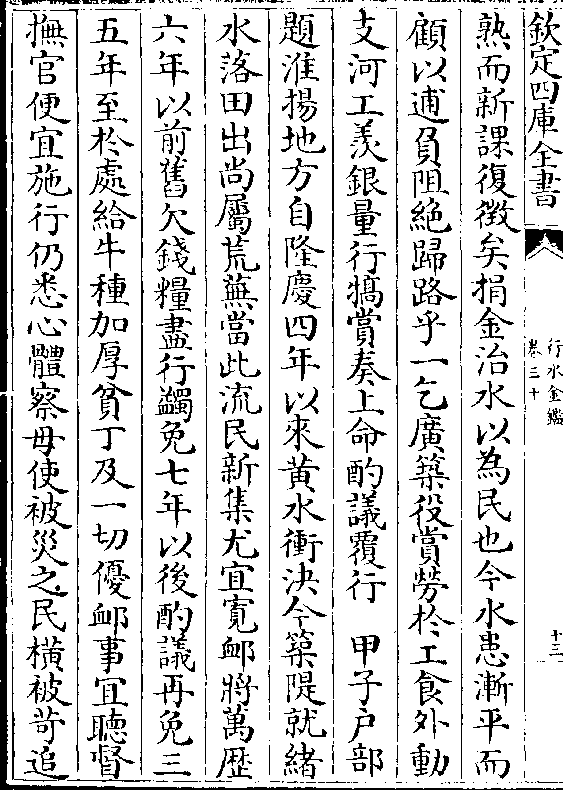 欽定四庫全書
行水金鑑
卷三十
十三
熟而新課復徵矣捐金治水以為民也今水患漸平而
顧以逋負阻絶歸路乎一乞廣築役賞勞於工食外動
支河工羨銀量行犒賞奏上命酌議覆行　甲子戶部
題淮揚地方自隆慶四年以來黄水衝決今築隄就緒
水落田出尚屬荒蕪當此流民新集尤宜寛卹將萬歴
六年以前舊欠錢糧盡行蠲免七年以後酌議再免三
五年至於處給牛種加厚貧丁及一切優卹事宜聽督
撫官便宜施行仍悉心體察毋使被災之民横被苛追